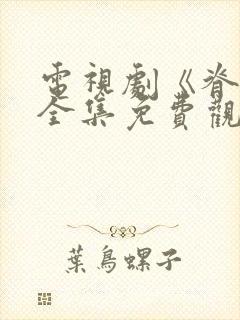 電視劇《脊
全集免費觀
葉鳥螺子